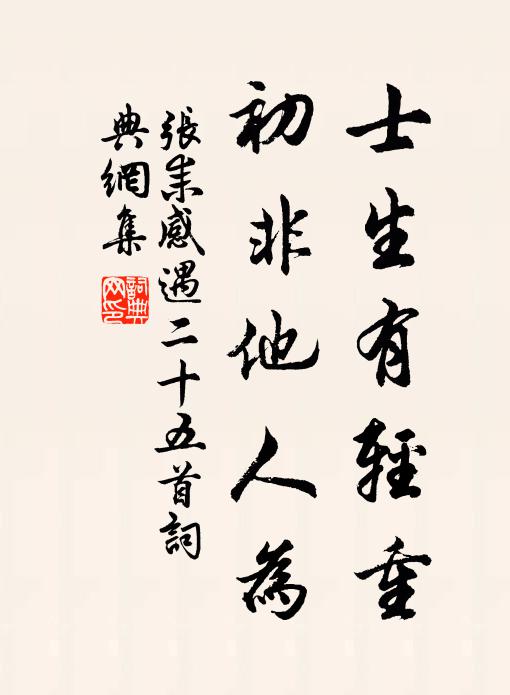 士生有輕重
初非他人為
張耒感遇二十五首詞
典網集
詞典
網印